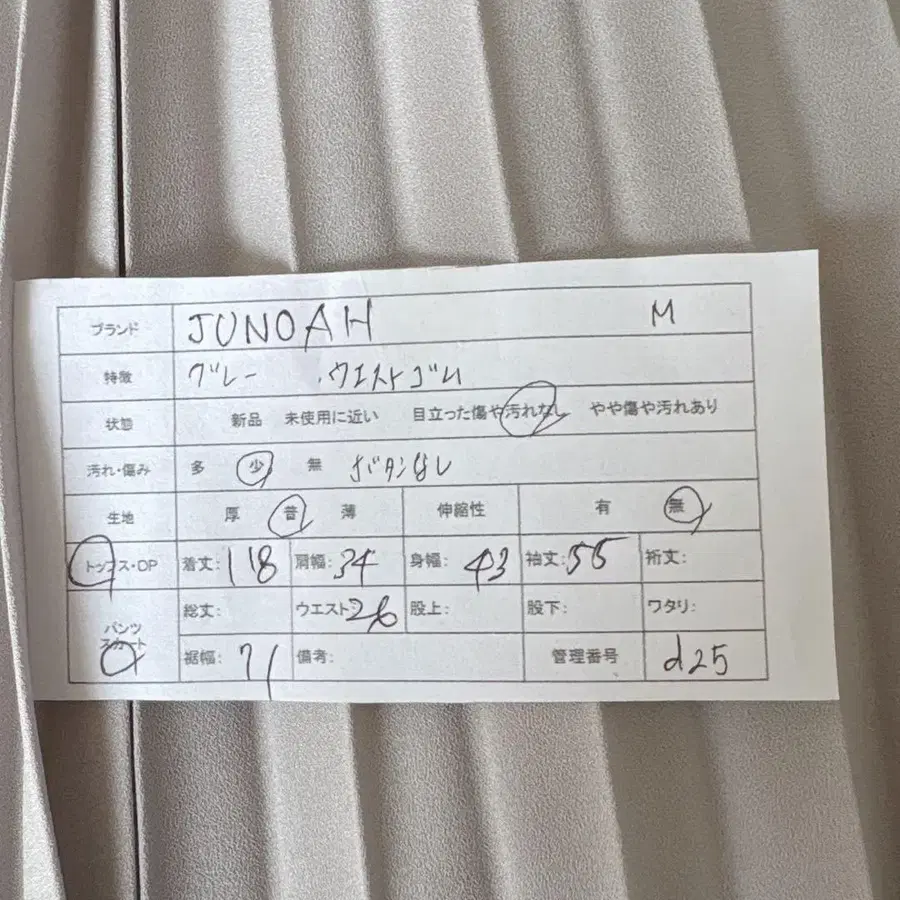 ブランド JUNOAH M
特徴 グレー ・ウエストゴム
状態 新品 未使用に近い 目立った傷や汚れなし やや傷や汚れあり
汚れ・傷み 多 少 無 ボタンなし
生地 厚 普 薄 伸縮性 有 無
トップス・OP 着丈:118 肩幅:34 身幅:43 袖丈:55 裄丈:
パンツ スカート 総丈: ウエスト:26 股上: 股下: ワタリ:
裾幅:71 備考: 管理番号 d25